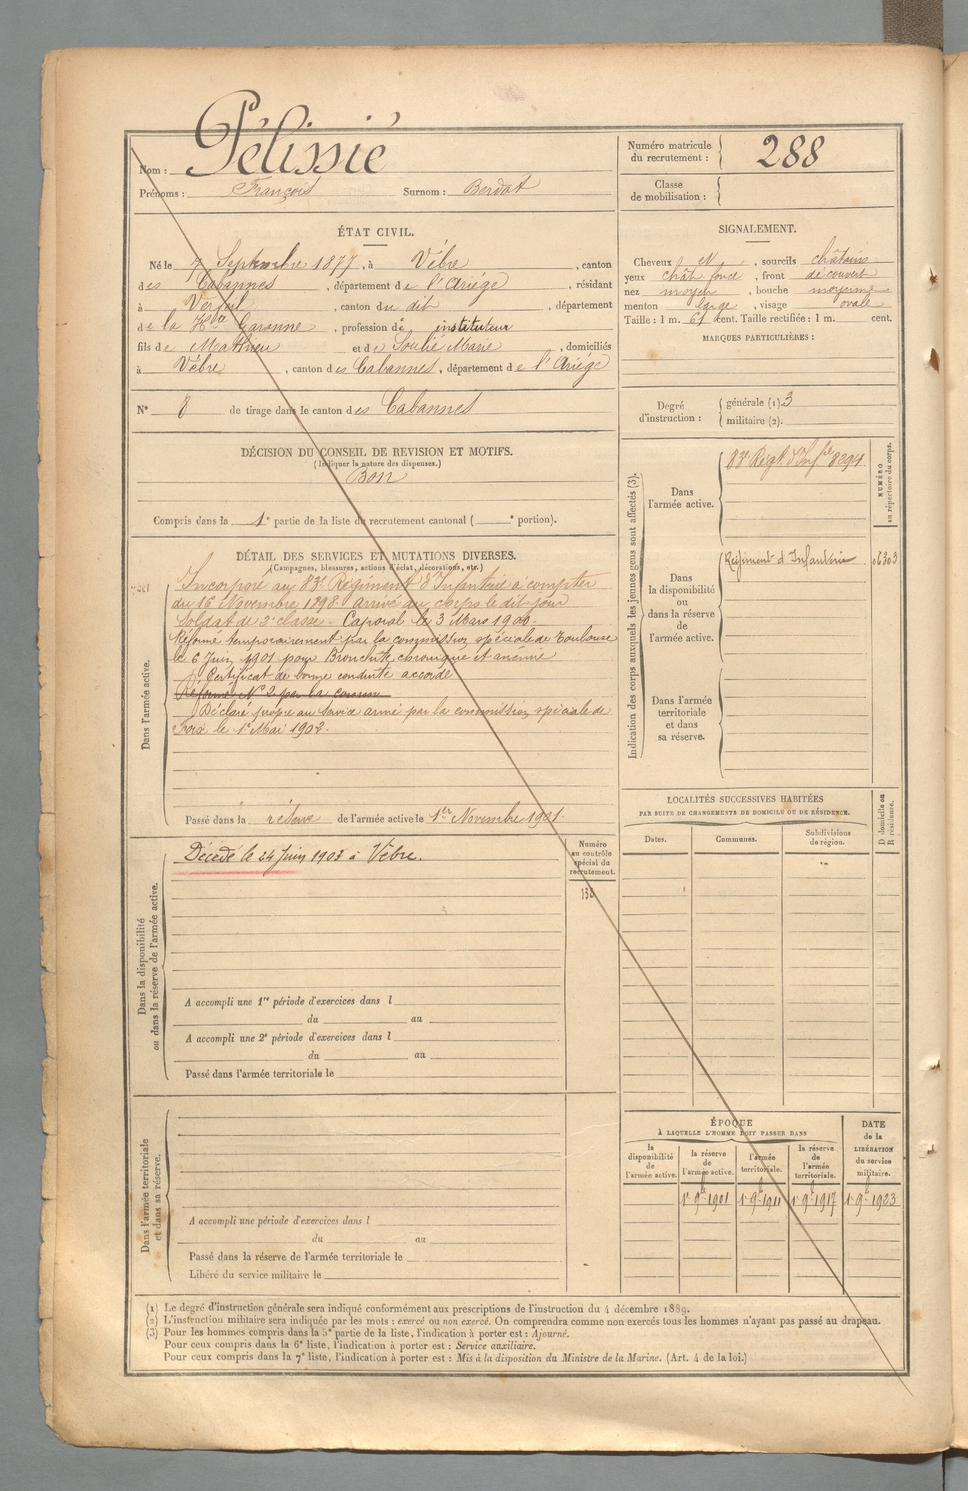 Nom : Pélissié
Prénoms : François Surnom : Berdot
ÉTAT CIVIL.
Né le 7 Septembre 1877, à Vèbre, canton
des Cabannes, département de l'Ariège, résidant
à Verfeil, canton du dit, département
de la Hte Garonne, profession de instituteur
fils de Mathieu et de Soulié Marie, domiciliés
à Vèbre, canton des Cabannes, département de l'Ariège
N° 8 de tirage dans le canton des Cabannes
DÉCISION DU CONSEIL DE REVISION ET MOTIFS.
(Indiquer la nature des dispenses.)
Bon
Compris dans la 1e partie de la liste du recrutement cantonal ( e portion).
DÉTAIL DES SERVICES ET MUTATIONS DIVERSES.
(Campagnes, blessures, actions d'éclat, décorations, etc.)
Dans l'armée active.
Incorporé au 83e Régiment d'Infanterie à compter
du 16 Novembre 1898. arrivé au corps le dit jour
Soldat de 2e classe. Caporal le 3 Mars 1900.
Réformé temporairement par la commission spéciale de Toulouse
le 6 Juin 1901 pour Bronchite chronique et anémie
Certificat de bonne conduite accordé
Réformé N° 2 par la
Déclaré propre au service armé par la commission spéciale de
Foix le 1er Mai 1902.
Passé dans la réserve de l'armée active le 1er Novembre 1901.
Dans la disponibilité
ou dans la réserve de l'armée active.
Décédé le 24 Juin 1903 à Vèbre.
Numéro
au contrôle
spécial du
recrutement.
138
A accompli une 1re période d'exercices dans l
du au
A accompli une 2e période d'exercices dans l
du au
Passé dans l'armée territoriale le
Dans l'armée territoriale
et dans sa réserve.
A accompli une période d'exercices dans l
du au
Passé dans la réserve de l'armée territoriale le
Libéré du service militaire le
Numéro matricule
du recrutement : 288
Classe
de mobilisation :
SIGNALEMENT.
Cheveux N, sourcils châtains
yeux chât foncé, front découvert
nez moyen, bouche moyenne
menton large, visage ovale
Taille : 1 m. 61 cent. Taille rectifiée : 1 m. cent.
MARQUES PARTICULIÈRES :
Degré
d'instruction :
générale (1) 3
militaire (2).
Indication des corps auxquels les jeunes gens sont affectés (3).
NUMÉRO
au répertoire du corps.
Dans
l'armée active.
83e Régt d'Infie 8294
Dans
la disponibilité
ou
dans la réserve
de
l'armée active.
Régiment d'Infanterie 06303
Dans l'armée
territoriale
et dans
sa réserve.
LOCALITÉS SUCCESSIVES HABITÉES
PAR SUITE DE CHANGEMENTS DE DOMICILE OU DE RÉSIDENCE.
Dates. Communes. Subdivisions
de région.
D domicile ou
R résidence.
ÉPOQUE
À LAQUELLE L'HOMME DOIT PASSER DANS
la
disponibilité
de
l'armée active.
la réserve
de
l'armée active.
l'armée
territoriale.
la réserve
de
l'armée
territoriale.
DATE
de la
LIBÉRATION
du service
militaire.
1r 9bre 1901 1r 9bre 1911 1r 9bre 1917 1r 9bre 1923
(1) Le degré d'instruction générale sera indiqué conformément aux prescriptions de l'instruction du 4 décembre 1889.
(2) L'instruction militaire sera indiquée par les mots : exercé ou non exercé. On comprendra comme non exercés tous les hommes n'ayant pas passé au drapeau.
(3) Pour les hommes compris dans la 5e partie de la liste, l'indication à porter est : Ajourné.
Pour ceux compris dans la 6e liste, l'indication à porter est : Service auxiliaire.
Pour ceux compris dans la 7e liste, l'indication à porter est : Mis à la disposition du Ministre de la Marine. (Art. 4 de la loi.)